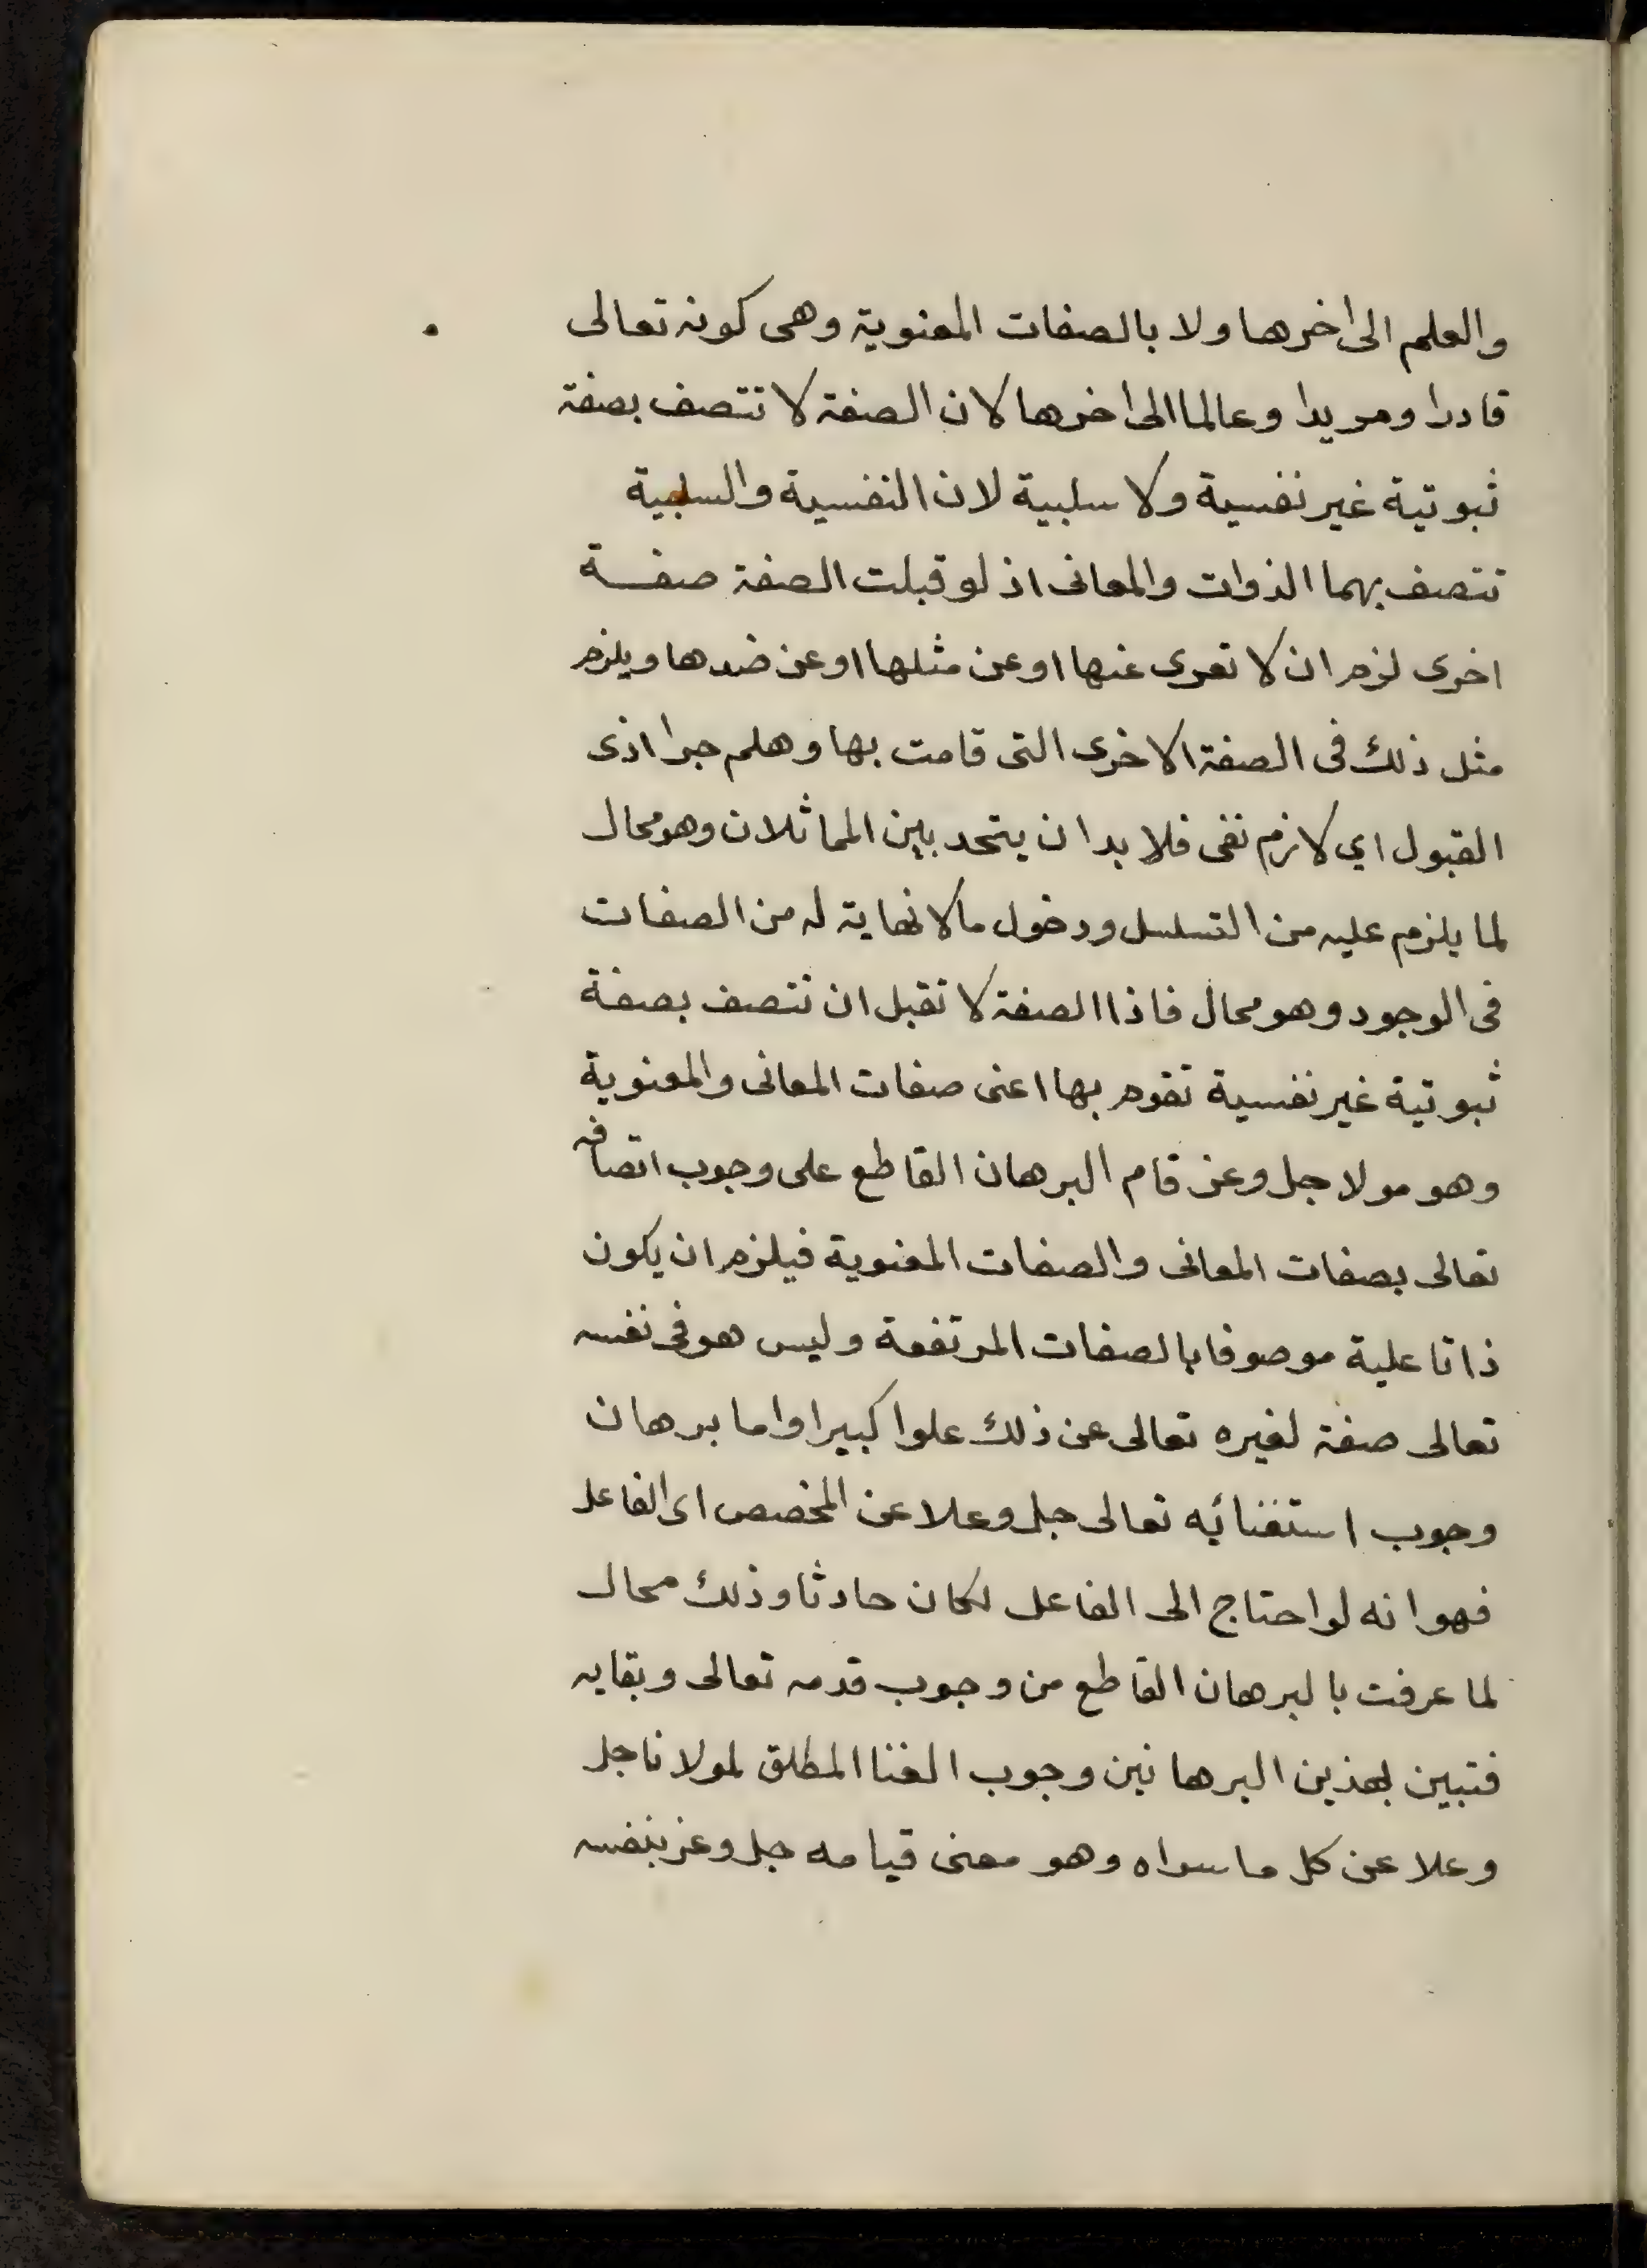 والعلم الى اخرها ولا بالصفات المعنوية وهى كونه تعالى
قادرا ومريدا وعالما الى اخرها لان الصفة لا تتصف بصفة
ثبوتية غير نفسية ولا سلبية لان النفسية والسلبية
تتصف بهما الذوات والمعانى اذ لو قبلت الصفة صفة
اخرى لزم ان لا تعرى عنها او عن مثلها او عن ضدها ويلزم
مثل ذلك فى الصفة الاخرى التى قامت بها وهلم جرا اذى
القبول اي لازم نفى فلا بد ان يتحد بين المماثلان وهو محال
لما يلزم عليه من التسلسل ودخول ما لا نهاية له من الصفات
فى الوجود وهو محال فاذا الصفة لا تقبل ان تتصف بصفة
ثبوتية غير نفسية تقوم بها اعنى صفات المعانى والمعنوية
وهو مولا جل وعز قام البرهان القاطع على وجوب اتصافه
تعالى بصفات المعانى والصفات المعنوية فيلزم ان يكون
ذاتا علية موصوفا بالصفات المرتفعة وليس هو فى نفسه
تعالى صفة لغيره تعالى عن ذلك علوا كبيرا واما برهان
وجوب استغنائه تعالى جل وعلا عن المخصص اى الفاعل
فهو انه لو احتاج الى الفاعل لكان حادثا وذلك محال
لما عرفت بالبرهان القاطع من وجوب قدمه تعالى وبقايه
فتبين بهذين البرهانين وجوب الغنا المطلق لمولانا جل
وعلا عن كل ما سواه وهو معنى قيامه جل وعز بنفسه